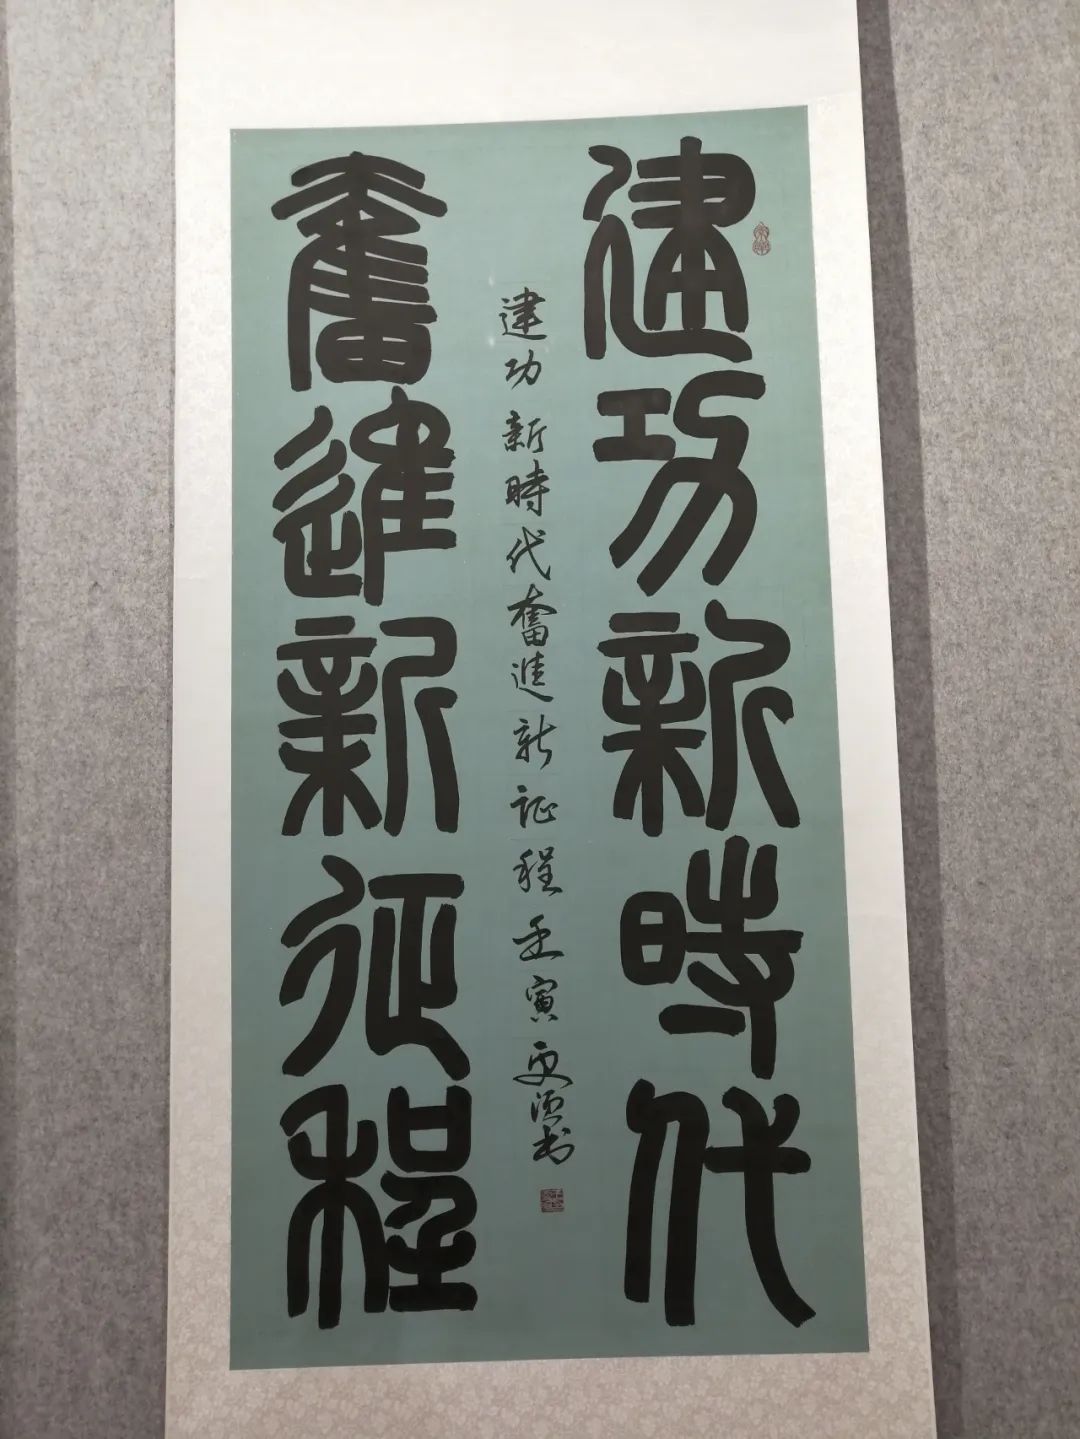 建功新時代
奮進新征程
建功新時代奮進新証程壬寅更須书